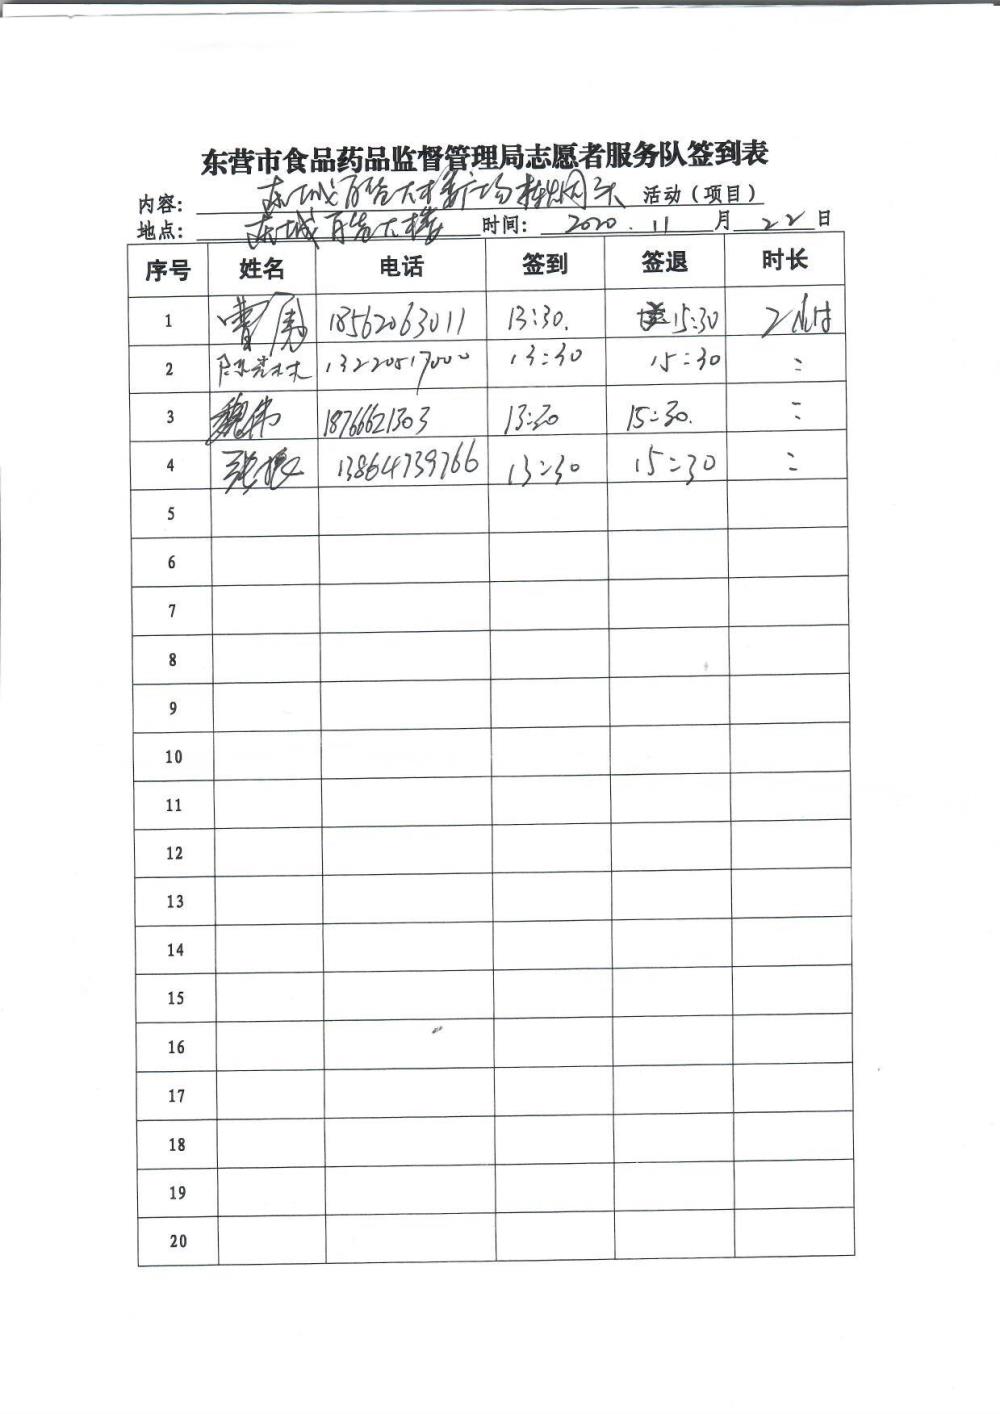 东营市食品药品监督管理局志愿者服务队签到表
内容： 东城百货大楼广场捡烟头 活动（项目）
地点： 东城百货大楼 时间： 2020.11 月 22 日
序号 姓名 电话 签到 签退 时长
1 曹 18562063011 13:30. 15:30 2小时
2 陈 13220517000 13:30 15:30 =
3 魏伟 18766621303 13:30 15:30. =
4 张 13864739766 13:30 15:30 =
5
6
7
8
9
10
11
12
13
14
15
16
17
18
19
20